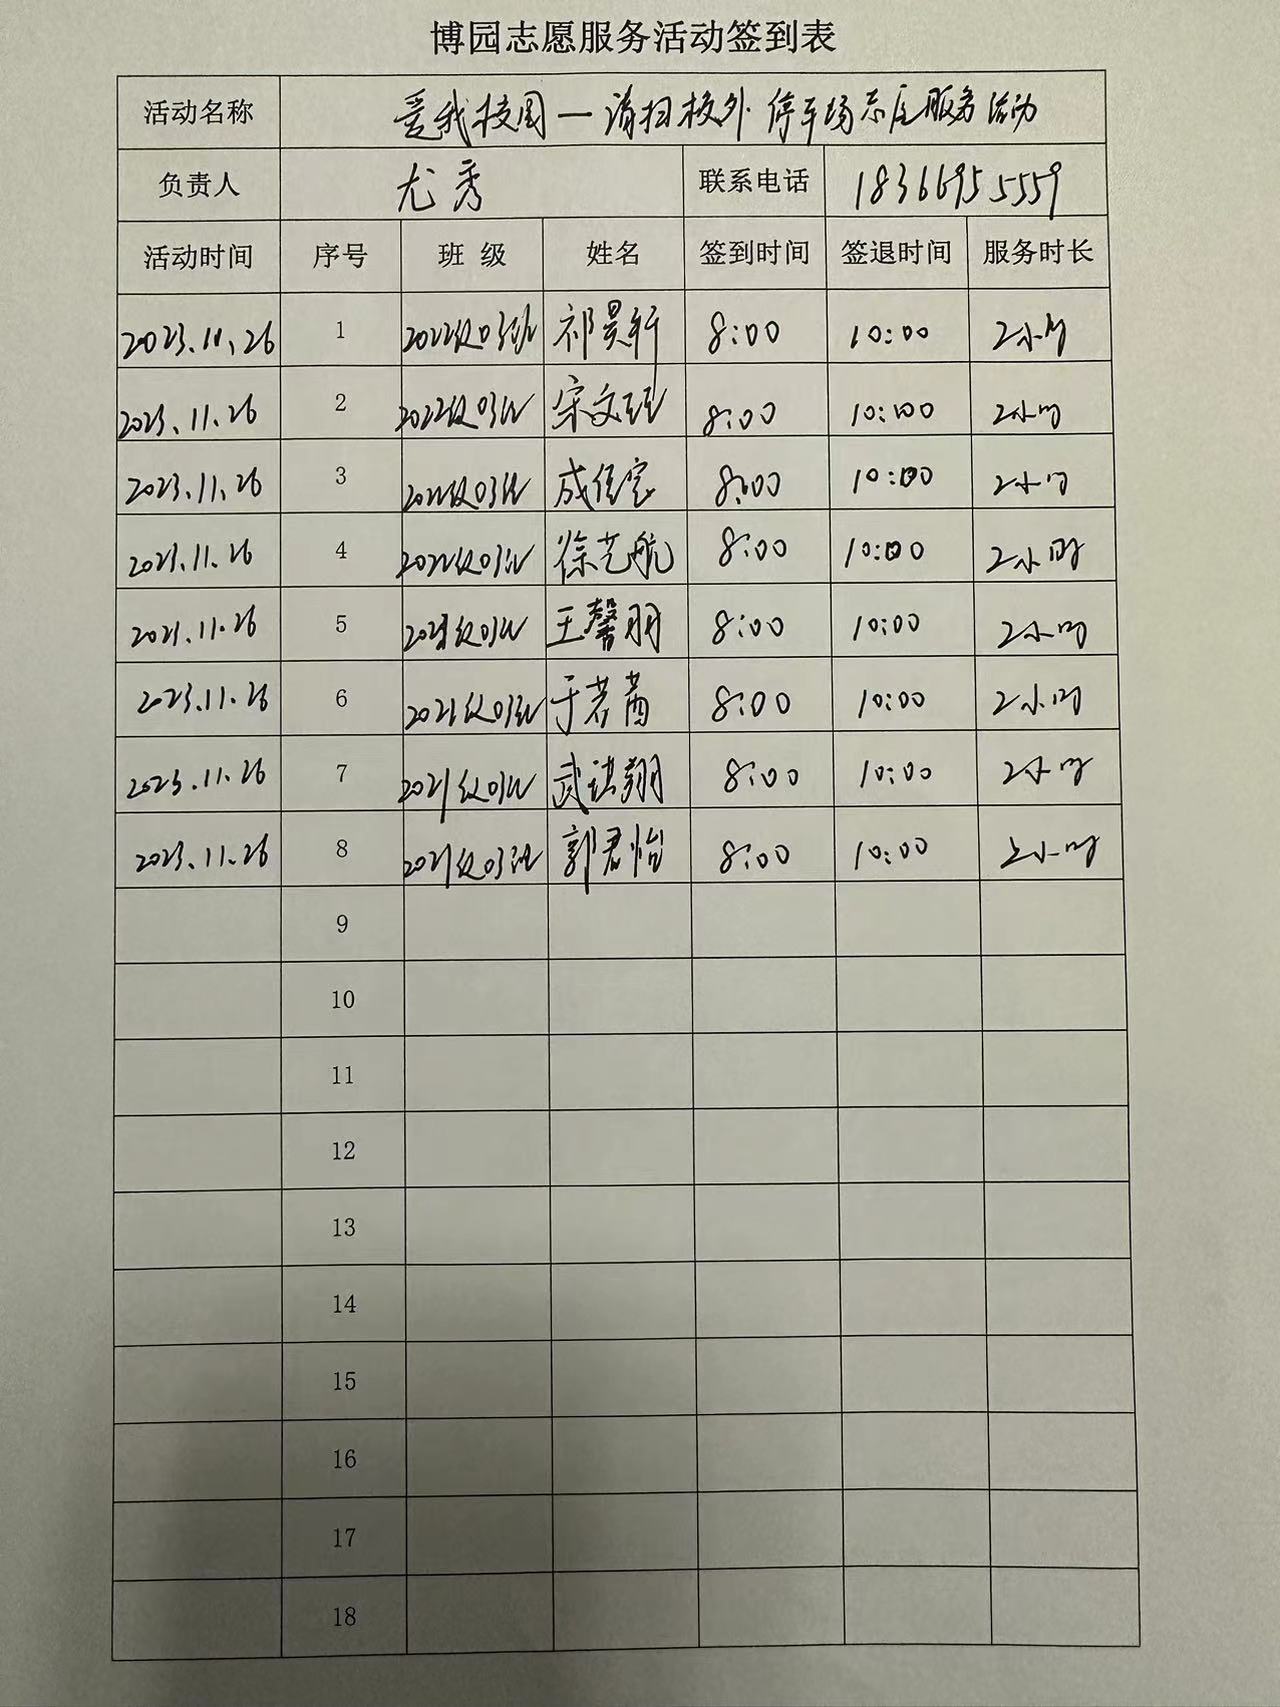 博园志愿服务活动签到表
活动名称 爱我校园—清扫校外停车场志愿服务活动
负责人 尤秀 联系电话 18366955559
活动时间 序号 班 级 姓名 签到时间 签退时间 服务时长
2023.11.26 1 2022级03班 祁昊轩 8:00 10:00 2小时
2023.11.26 2 2022级03班 宋文 8:00 10:00 2小时
2023.11.26 3 2022级03班 成 8:00 10:00 2小时
2023.11.26 4 2022级03班 徐艺航 8:00 10:00 2小时
2023.11.26 5 级03班 王馨羽 8:00 10:00 2小时
2023.11.26 6 2021级03班 于若茜 8:00 10:00 2小时
2023.11.26 7 2021级03班 武琪翔 8:00 10:00 2小时
2023.11.26 8 2021级03班 郭君怡 8:00 10:00 2小时
9
10
11
12
13
14
15
16
17
18